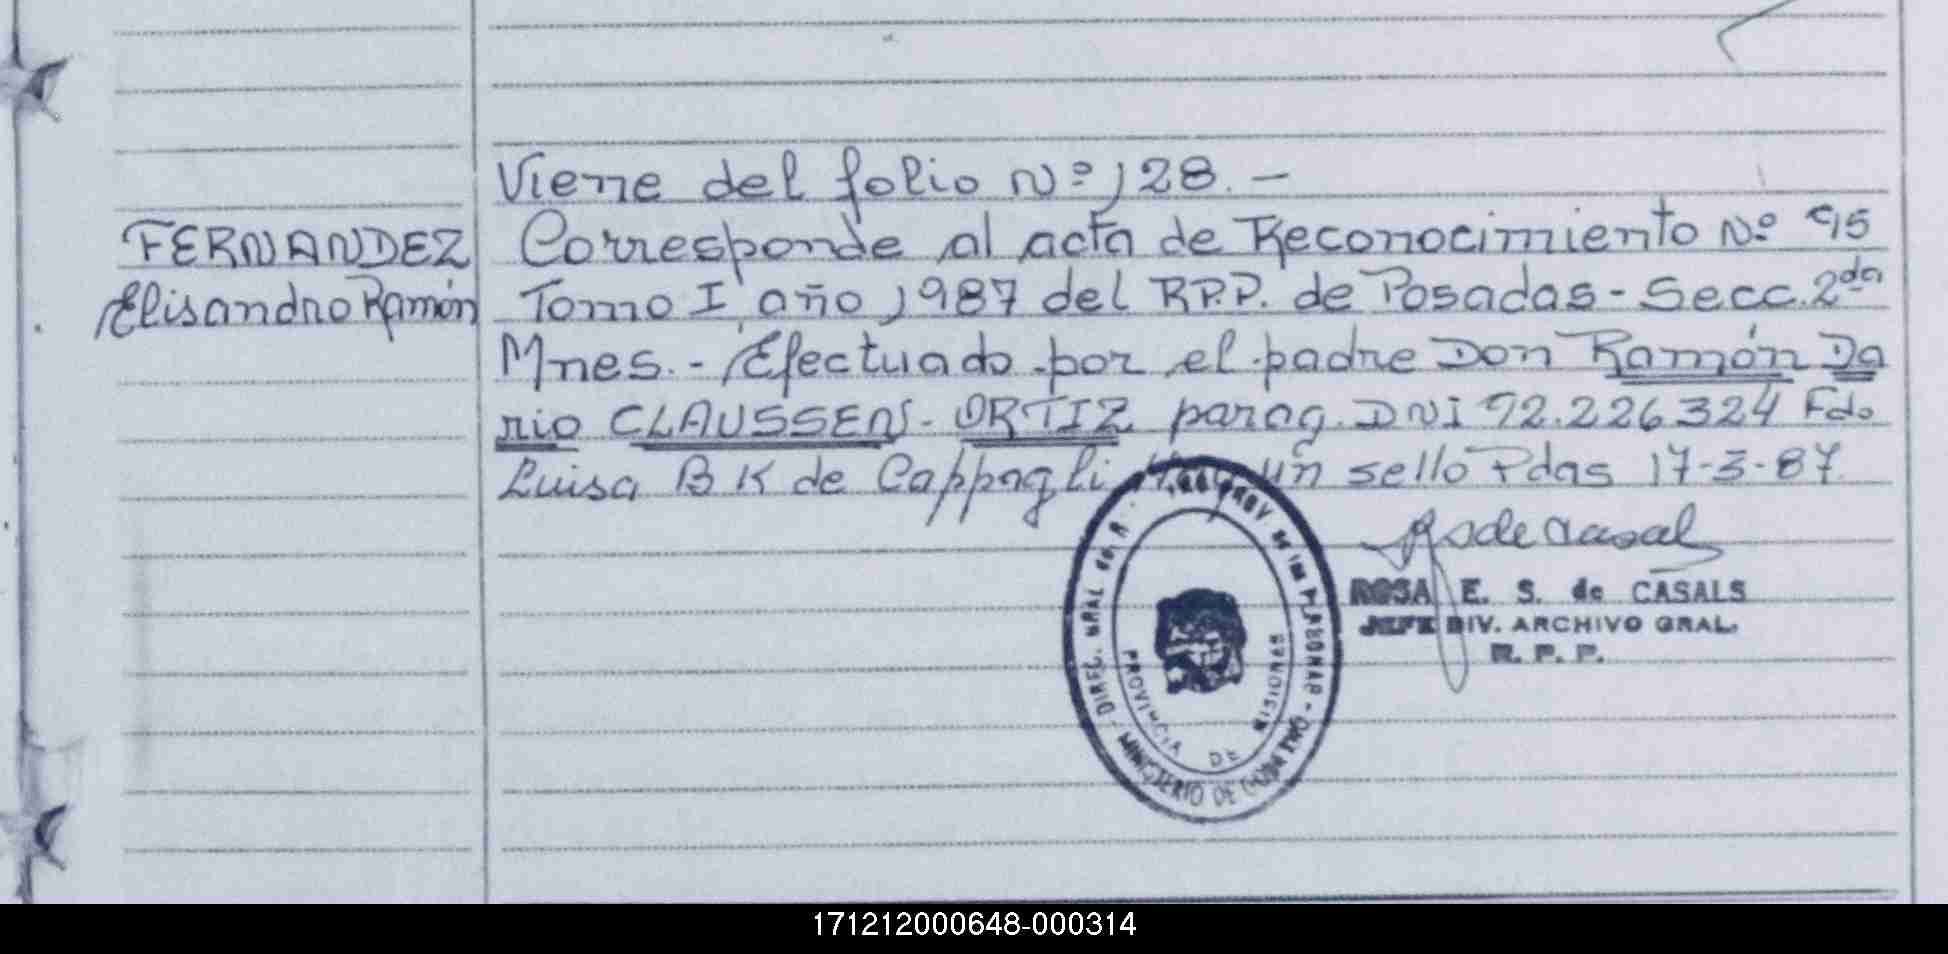 Viene del folio Nº 128.-
FERNANDEZ
Elisandro Ramón
Corresponde al acta de Reconocimiento Nº 95
Tomo I año 1987 del R.P.P. de Posadas - Secc. 2da
Mnes. - Efectuado por el padre Don Ramón Da
rio CLAUSSEN - ORTIZ parag. DNI 92.226.324 Fdo
Luisa B K de Cappagli Hay un sello Pdas 17-3-87.
ROSA E. S. de CASALS
JEFE DIV. ARCHIVO GRAL.
R. P. P.
PROVINCIA DE MISIONES
MINISTERIO DE GOBIERNO
171212000648-000314